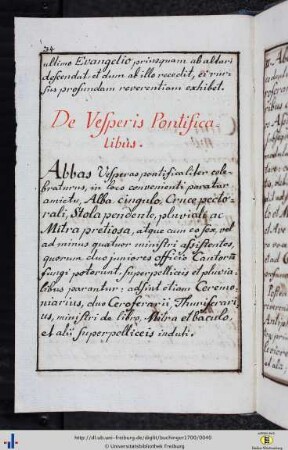 34
ultimo Evangelio priusquam ab altari
descendat, et dum ab illo recedit, ei rur-
sus profundam reverentiam exhibet.
De Vesperis Pontifica-
libus.
Abbas Vesperas pontificaliter cele-
braturus, in loco convenienti paratur
amictu, Alba, cingulo, Cruce pecto-
rali, Stola pendente, pluviali ac
Mitra pretiosa, atque cum eo sex, vel
ad minus quatuor ministri assistentes,
quorum duo juniores officio Cantorum
fungi poterunt, superpelliceis et pluvia-
libus parantur; adsint etiam Ceremo-
niarius, duo Ceroferarii, Thuriferari-
us, ministri de libro, Mitra et baculo,
et alii superpelliceis induti.
http://dl.ub.uni-freiburg.de/diglit/buchinger1700/0040
© Universitätsbibliothek Freiburg